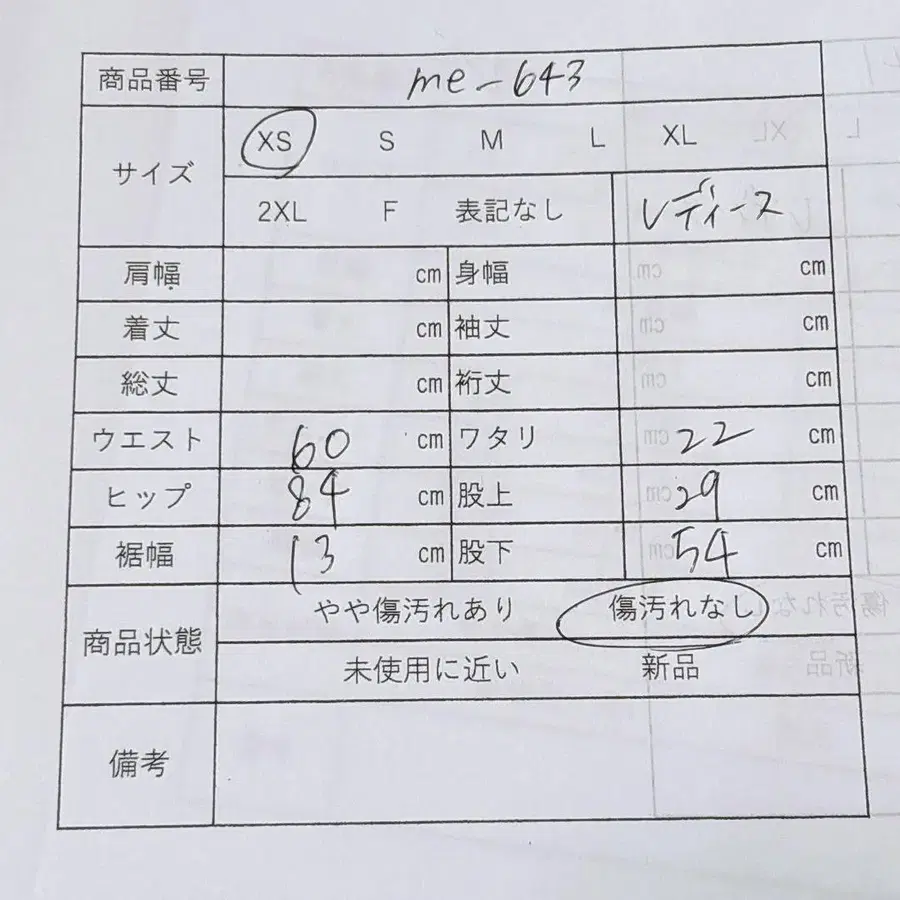 商品番号 me-643
サイズ XS S M L XL
2XL F 表記なし レディース
肩幅 cm 身幅 cm
着丈 cm 袖丈 cm
総丈 cm 裄丈 cm
ウエスト 60 cm ワタリ 22 cm
ヒップ 84 cm 股上 29 cm
裾幅 13 cm 股下 54 cm
商品状態 やや傷汚れあり 傷汚れなし
未使用に近い 新品
備考